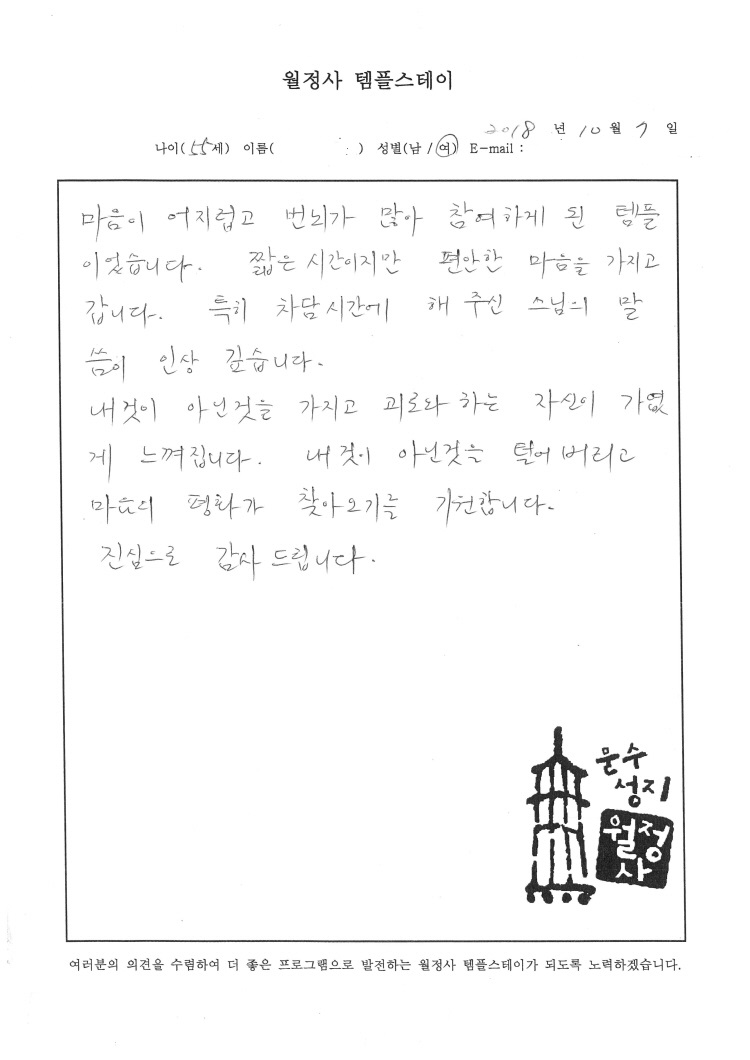 월정사 템플스테이
2018 년 10 월 7 일
나이( 55세) 이름( ) 성별(남 / 여) E-mail :
마음이 어지럽고 번뇌가 많아 참여하게 된 템플
이었습니다. 짧은 시간이지만 편안한 마음을 가지고
갑니다. 특히 차담시간에 해 주신 스님의 말
씀이 인상 깊습니다.
내것이 아닌것을 가지고 괴로와 하는 자신이 가엾
게 느껴집니다. 내것이 아닌것을 털어버리고
마음의 평화가 찾아오기를 기원합니다.
진심으로 감사 드립니다.
문수
성지
월정
사
여러분의 의견을 수렴하여 더 좋은 프로그램으로 발전하는 월정사 템플스테이가 되도록 노력하겠습니다.